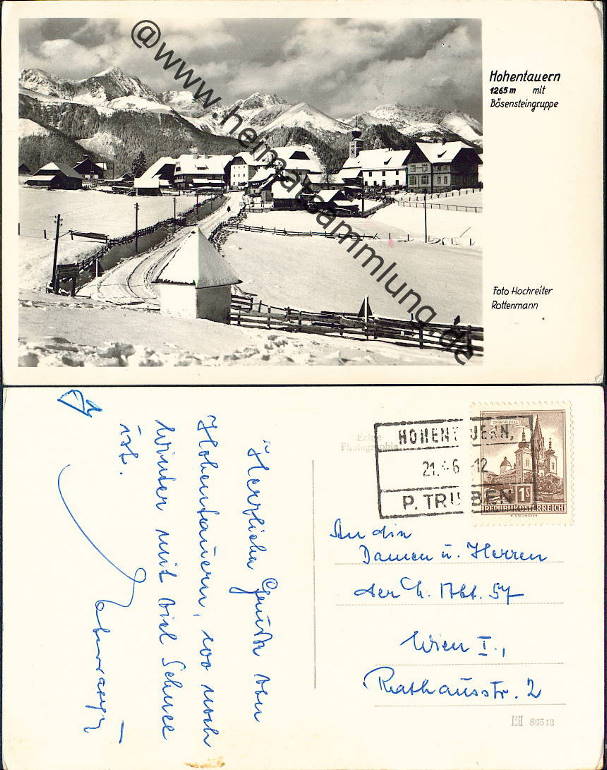 @www.heimatsammlung.de
Hohentauern
1265 m mit
Bösensteingruppe
Foto Hochreiter
Rottenmann
HOHENT UERN,
21. 6 12
P. TRIEBEN
1S
REPUBLIK ÖSTERREICH
An die
Damen u. Herren
der h. Abt. 57
Wien I.,
Rathausstr. 2
Herzliche Grüße von
Hohentauern, wo noch
Winter mit viel Schnee
ist.